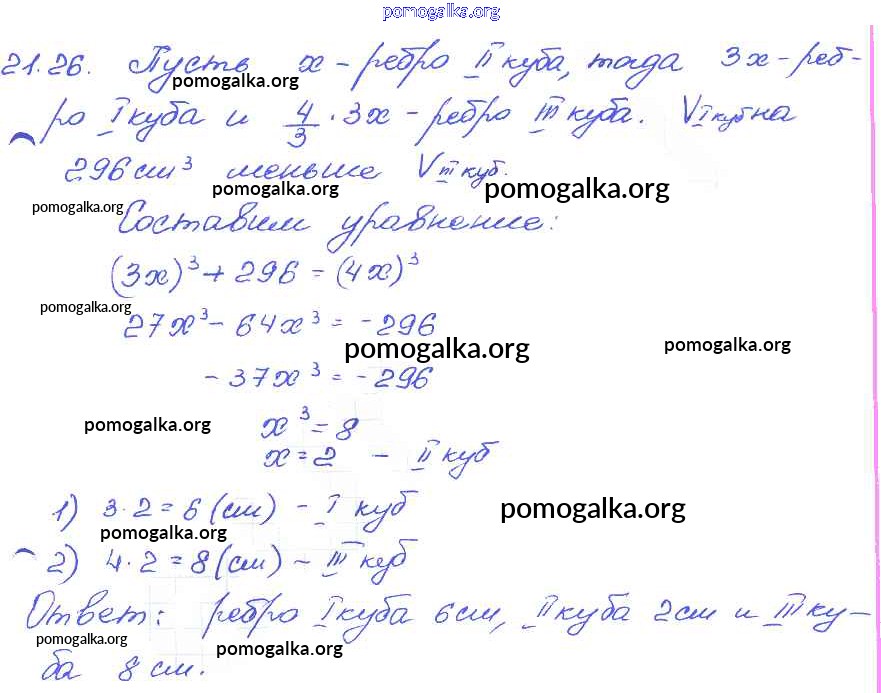 pomogalka.org
21.26. Пусть x - ребро II куба, тогда 3x - реб-
pomogalka.org
ро I куба и 4/3 · 3x - ребро III куба. V I куб на
296 см³ меньше V III куб.
pomogalka.org pomogalka.org
pomogalka.org Составим уравнение:
(3x)³ + 296 = (4x)³
pomogalka.org
27x³ - 64x³ = -296
pomogalka.org pomogalka.org
- 37x³ = -296
pomogalka.org x³ = 8
x = 2 - II куб
1) 3·2 = 6 (см) - I куб pomogalka.org
pomogalka.org
2) 4·2 = 8 (см) - III куб
Ответ: ребро I куба 6 см, II куба 2 см и III ку-
pomogalka.org pomogalka.org
ба 8 см.